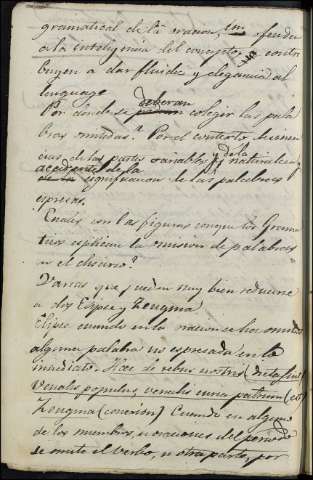 gramatical de la oracion, sin ofender
a la inteligencia del concepto, contri
buyen a dar fluides y elegancia al
lenguage
Por donde se deberan colegir las pala
bras omitidas? Por el contexto,
cias de las partes variables y de la naturaleza y
accidentes de la
significacion de las palabras
espresas.
Cuales son las figuras con que los Grama
ticos esplican la omision de palabras
en el discurso?
Varias que pueden muy bien reducirse
a dos Elipse y Zeugma
Elipse cuando en la oracion se ha omitido
alguna palabra no espresada en lo
inmediato. Haec de rebus nostris (dicta sint)
Venalis populus, venalis curia patrum (est)
Zeugma (conexion) Cuando en alguno
de los miembros, u oraciones del periodo
se omite el verbo, u otra parte, por